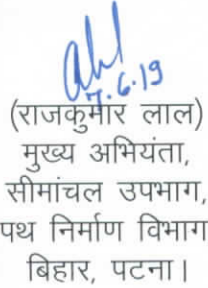 7.6.19
(राजकुमार लाल)
मुख्य अभियंता,
सीमांचल उपभाग,
पथ निर्माण विभाग
बिहार, पटना।